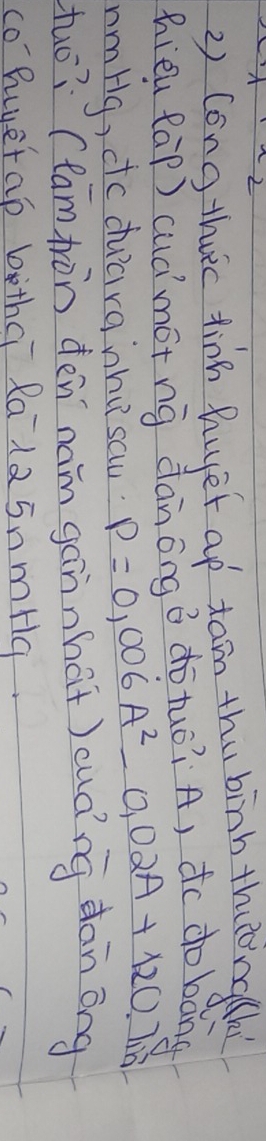 2) Công thức tính huyết áp tâm thu bình thường (kí
hiệu là P) của một ng đàn ông ở độ tuổi A, đc đo bằng
nmHg, đc đưa ra như sau: P = 0,006A² - 0,02A + 120. Tìm
tuổi (làm tròn đến năm gần nhất) của ng đàn ông
có huyết áp bt là 125nmHg.